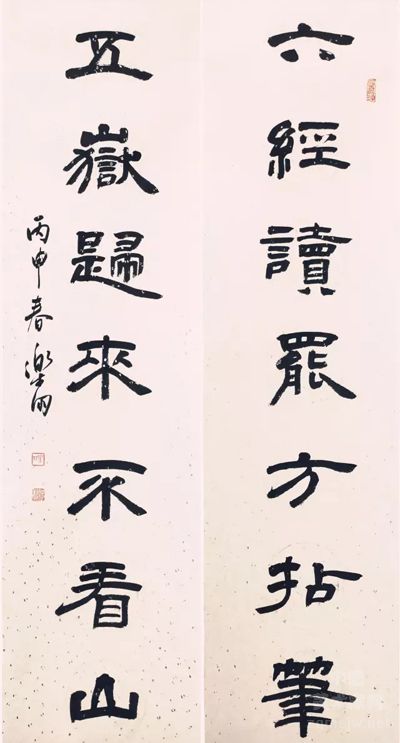 六經讀罷方拈筆
五嶽歸來不看山
丙申春樂明